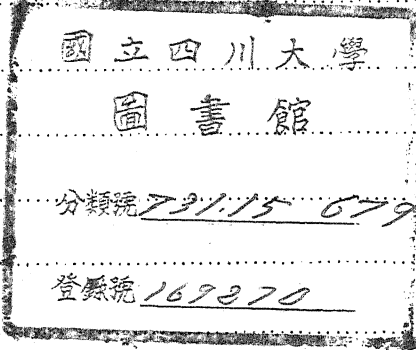 國立四川大學
圖書館
分類號 731.15 679
登錄號 169270